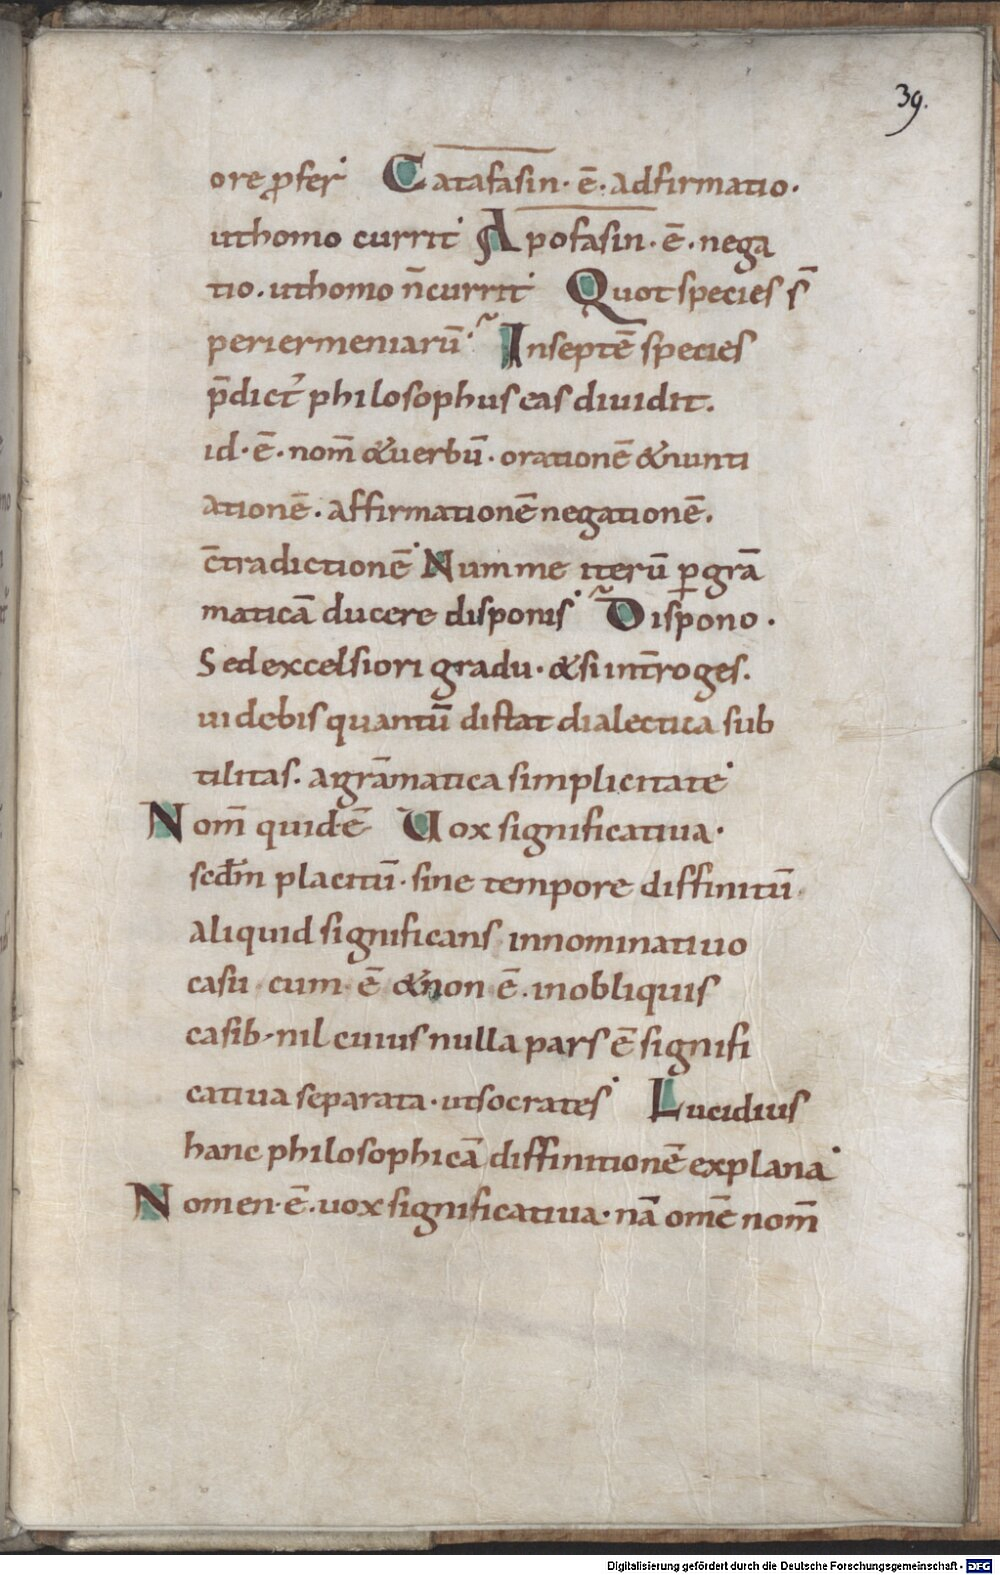 39.
ore ꝓfer˙ Catafasin· ē· adfirmatio·
uthomo currit˙ Apofasin· ē· nega
tio. uthomo n̄currit˙ Quot species s̄
periermeniarū· Inseptē species
p̄dict᷒ philosophus eas diuidit.
id· ē· nom̄ &uerbū· orationē &nunti
ationē. affirmationē negationē.
c̄tradictionē˙ Numme iterū ꝑgrā
maticā ducere disponis˙ Dispono.
Sed excelsiori gradu· &si int̄roges.
uidebis quantū distat dialectica sub
tilitas. agrāmatica simplicitate˙
Nom̄ quid·ē Uox significatiua·
scd̄m placitū· sine tempore diffinitū·
aliquid significans innominatiuo
casu cum· ē &non ē. inobliquis
casib· nil cuius nulla pars ē signifi
catiua separata· utsocrates˙ Lucidius
hanc philosophicā diffinitionē explana˙
Nomen· ē. uox significatiua· nā om̄e nom̄
Digitalisierung gefördert durch die Deutsche Forschungsgemeinschaft - DFG